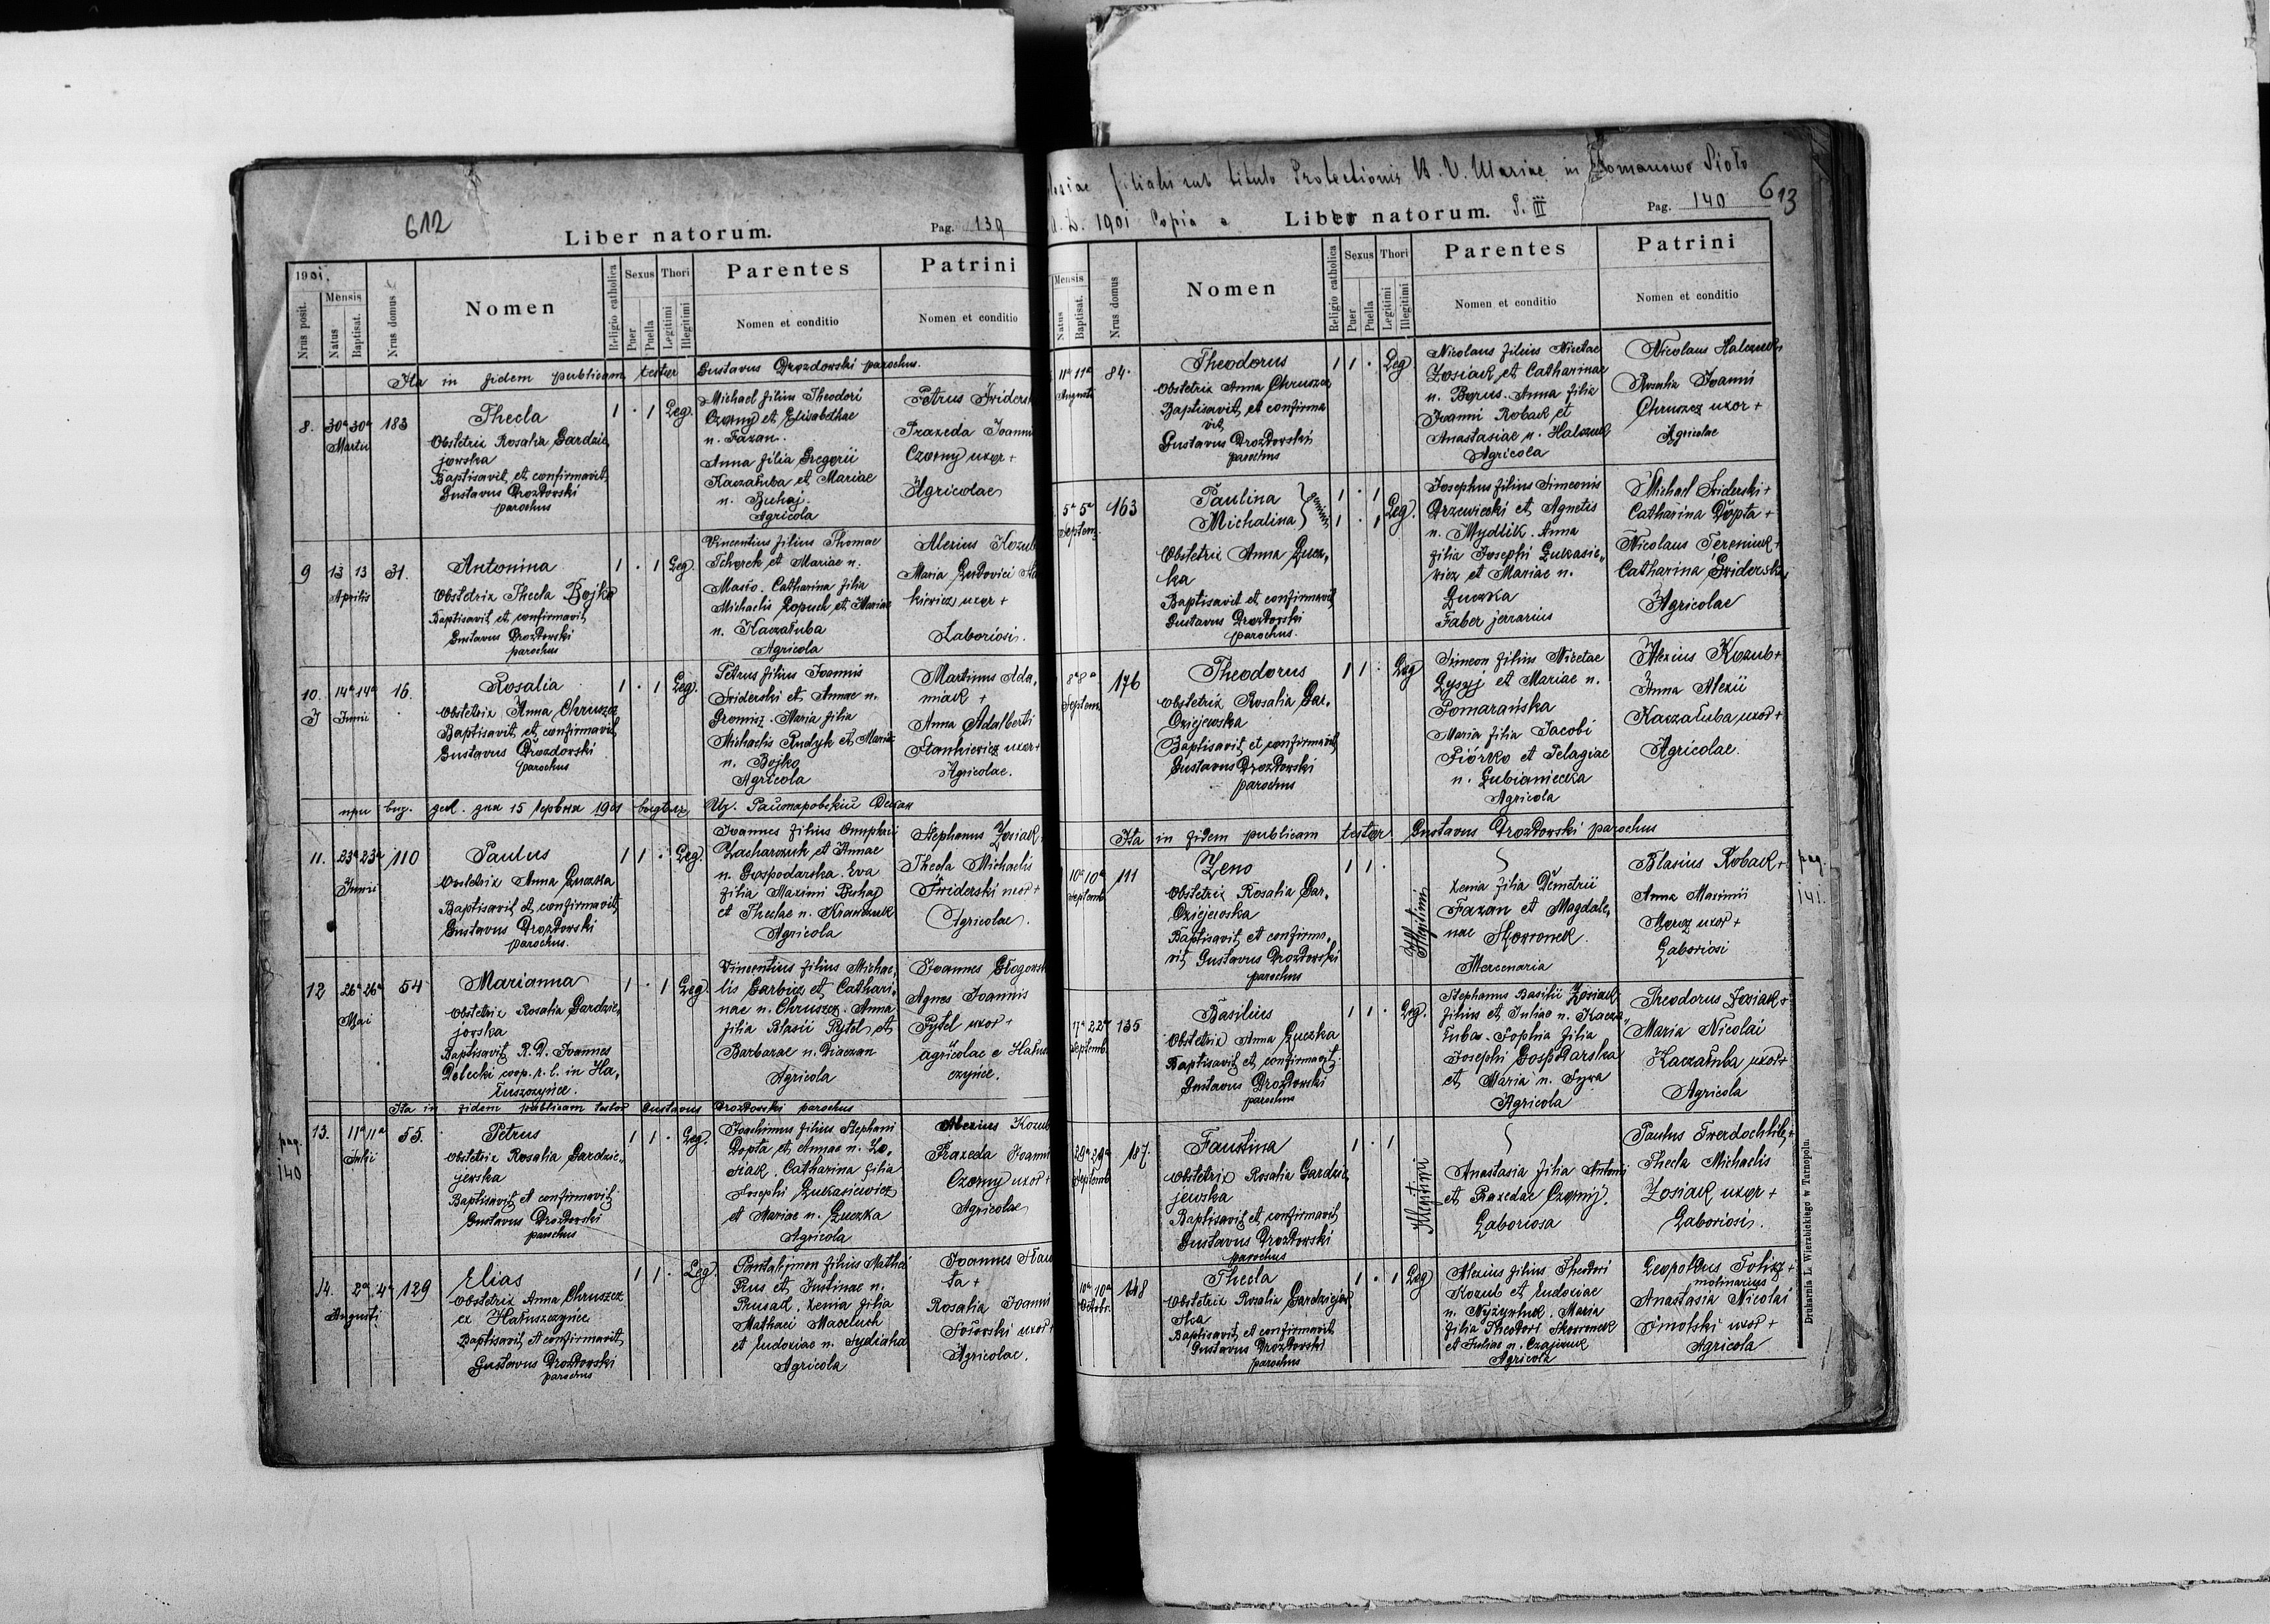 612
Liber natorum.
Pag. 139
1901.
Nrus posit.
Mensis
Natus
Baptisat.
Nrus domus
Nomen
Religio catholica
Sexus
Puer
Puella
Thori
Legitimi
Illegitimi
Parentes
Nomen et conditio
Patrini
Nomen et conditio
Ita in fidem publicam testor Gustavus Drozdowski parochus.
8. 30a 30a Martii 183
Thecla
Obstetrix Rosalia Gardzie,
jewska
Baptisavit et confirmavit
Gustavus Drozdowski
parochus
1 . 1 Leg.
Michael filius Theodori
Czorny et Elisabethae
n. Fazan.
Anna filia Gregorii
Kaczałuba et Mariae
n. Buhaj.
Agricola
Petrus
Praxeda
Czorny uxor +
Agricolae
9 13 13 Aprilis 31.
Antonina
Obstetrix Thecla Bojko
Baptisavit et confirmavit
Gustavus Drozdowski
parochus
1 . 1 Leg.
Vincentius filius Thomae
Tchorek et Mariae n.
Masło. Catharina filia
Michaelis Łopuch et Mariae
n. Kaczałuba
Agricola
Alexius Kozub
Maria Ludovici
kiewicz uxor +
Laboriosi.
10. 14a 14a Junii 16.
Rosalia
Obstetrix Anna Chruszcz
Baptisavit et confirmavit
Gustavus Drozdowski
parochus
1 . 1 Leg.
Petrus filius Joannis
Swiderski et Annae n.
Gromisz. Maria filia
Michaelis Rudyk et Mariae
n. Bojko
Agricola
Martinus Ada,
miak +
Anna Adalberti
Stankiewicz uxor +
Agricolae.
при дня 15 червня 1901
11. 23a 23a Junii 110
Paulus
Obstetrix Anna Łuczka
Baptisavit et confirmavit
Gustavus Drozdowski
parochus.
1 1 . Leg.
Joannes filius Onuphrii
Zacharczuk et Annae
n. Gospodarska. Eva
filia Maximi Buhaj
et Theclae n. Krawczuk
Agricola
Stephanus Zosiak
Thecla Michaelis
Świderski uxor +
Agricolae.
12 26a 26a Mai 54
Marianna
Obstetrix Rosalia Gardzie,
jewska
Baptisavit R. D. Joannes
Delecki coop. r. l. in Ha,
łuszczyńce.
1 . 1 Leg.
Vincentius filius Michae,
lis Garbicz et Cathari,
nae n. Chruszcz. Anna
filia Blasii Pytel et
Barbarae n. Diaczan
Agricola
Joannes
Agnes Joannis
Pytel uxor +
agricolae e
czyńce.
Ita in fidem publicam testor Gustavus Drozdowski parochus
pag.
140
13. 11a 11a Julii 55.
Petrus
Obstetrix Rosalia Gardzie,,
jewska
Baptisavit et confirmavit
Gustavus Drozdowski
parochus
1 1 . Leg.
Joachimus filius Stephani
Dopta et Annae n. Zo,
siak. Catharina filia
Josephi Łukasiewicz
et Mariae n. Łuczka
Agricola
Alexius Kozub
Praxeda
Czorny uxor +
Agricolae
14. 2a 4a Augusti 129
Elias
Obstetrix Anna Chruszcz
ex Hałuszczyńce
Baptisavit et confirmavit
Gustavus Drozdowski
parochus
1 1 . Leg.
Pantalejmon filius Mathei
Prus et Justinae n.
Prusak. Xenia filia
Mathaei Maceluch
et Eudoxiae n. Sydiaha
Agricola
Joannes
ta +
Rosalia
uxor +
Agricolae.
filialis sub titulo Protectionis B. V. Mariae in Romanowe Sioło
A. D. 1901 Copia
Liber natorum. T. III
Pag. 140
613
Mensis
Natus
Baptisat.
Nrus domus
Nomen
Religio catholica
Sexus
Puer
Puella
Thori
Legitimi
Illegitimi
Parentes
Nomen et conditio
Patrini
Nomen et conditio
11a 11a Augusti 84.
Theodorus
Obstetrix Anna Chruszcz
Baptisavit et confirma
vit
Gustavus Drozdowski
parochus
1 1 . Leg
Nicolaus filius Nicetae
Zosiak et Catharinae
n. Borus. Anna filia
Joanni Roback et
Anastasiae n. Halczuk
Agricola
Nicolaus Halczuk
Rosalia Joanni
Chruszcz uxor +
Agricolae
5a 5a Septem. 163
Paulina
Michalina } gemini
Obstetrix Anna Łucz,
ka
Baptisavit et confirmavit
Gustavus Drozdowski
parochus.
1 . 1
1 . 1 Leg.
Josephus filius Simeonis
Drzewiecki et Agnetis
n. Mydlik. Anna
filia Josephi Łukasie,,
wicz et Mariae n.
Łuczka
Faber ferrarius
Michael Swiderski +
Catharina Dopta +
Nicolaus Tereniuk +
Catharina Swiderska
Agricolae
8a 8a Septem. 176
Theodorus
Obstetrix Rosalia Gar,
dziejewska
Baptisavit et confirmavit
Gustavus Drozdowski
parochus
1 1 . Leg
Simeon filius Nicetae
Łysyj et Mariae n.
Pomarańska
Maria filia Jacobi
Piórko et Pelagiae
n. Łubianiecka
Agricola
Alexius Kozub +
Anna Alexii
Kaczałuba uxor +
Agricolae.
Ita in fidem publicam testor Gustavus Drozdowski parochus
10a 10a Septemb. 111
Zeno
Obstetrix Rosalia Gar,
dziejewska
Baptisavit et confirma,
vit Gustavus Drozdowski
parochus
1 1 .
Illegitimi
Xenia filia Demetrii
Fazan et Magdale,
nae Skowronek.
Mercenaria
Blasius Roback +
Anna Maximii
Moroz uxor +
Laboriosi
pag.
141.
17a 22a Septemb. 135
Basilius
Obstetrix Anna Łuczka
Baptisavit et confirmavit
Gustavus Drozdowski
parochus
1 1 . Leg.
Stephanus Basilii Zosiak
filius et Juliae n. Kacza,,
łuba. Sophia filia
Josephi Gospodarska
et Maria n. Syva
Agricola
Theodorus Zosiak +
Maria Nicolai
Kaczałuba uxor +
Agricola
29a 29a Septemb. 187.
Faustina
Obstetrix Rosalia Gardzie,
jewska
Baptisavit et confirmavit
Gustavus Drozdowski
parochus
1 . 1
Illegitimi
Anastasia filia Antonii
et Praxedae Czornij.
Laboriosa
Paulus Twerdochlib, +
Thecla Michaelis
Zosiak uxor +
Laboriosi.
10a 10a Octobr. 148
Thecla
Obstetrix Rosalia Gardziejew
ska
Baptisavit et confirmavit
Gustavus Drozdowski
parochus
1 . 1 Leg
Alexius filius Theodori
Kozub et Eudoxiae
n. Nyżynuk. Maria
filia Theodori Skowronek
et Juliae n. Czajczuk
Agricola
Leopoldus Tolisz +
molinarius
Anastasia Nicolai
Smolski uxor +
Agricola
Drukarnia L. Wierzbickiego w Tarnopolu.